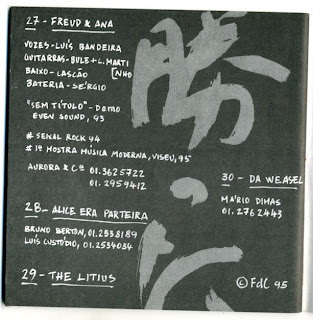 27 - FREUD & ANA
VOZES - LUÍS BANDEIRA
GUITARRAS - BULE + L. MARTI
BAIXO - CASCÃO [NHO
BATERIA - SÉRGIO
"SEM TÍTULO" - DEMO
EVEN SOUND, 93
# SENAL ROCK 94
# 1ª MOSTRA MÚSICA MODERNA, VISEU, 95
AURORA & Cª 01.3625722
01.2959412
28 - ALICE ERA PARTEIRA
BRUNO BERTON, 01.2538189
LUÍS CUSTÓDIO, 01.2534034
29 - THE LITIUS
30 - DA WEASEL
MÁRIO DIMAS
01.2762443
© FdC 95